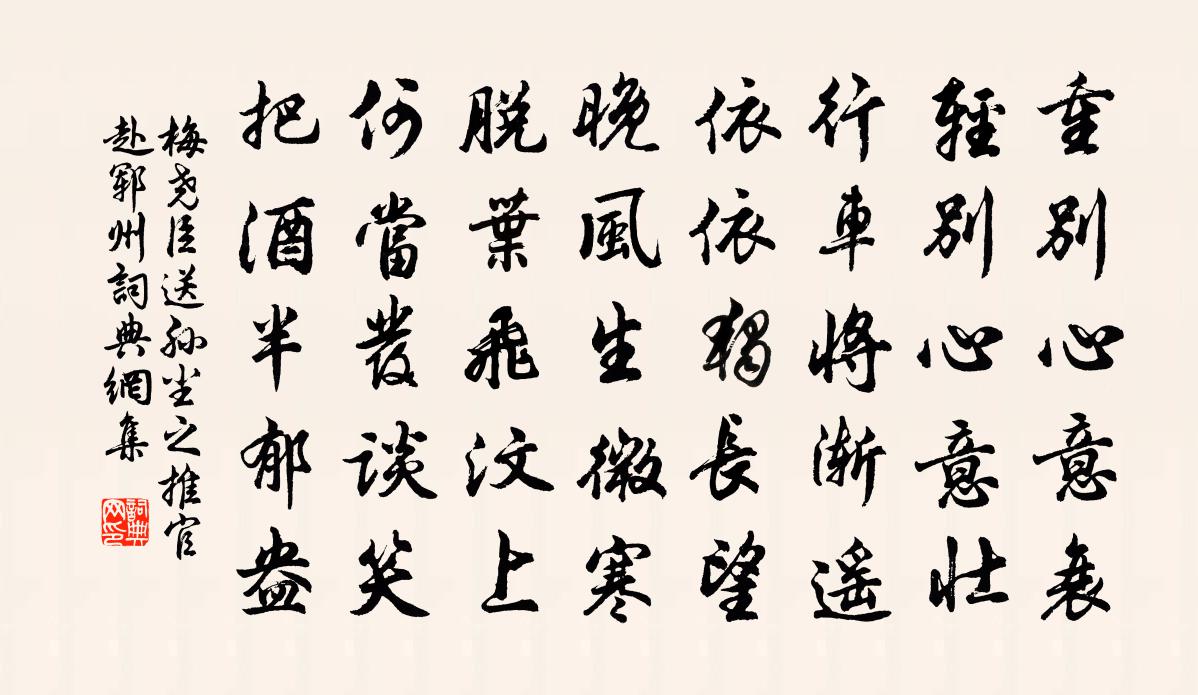 重別心意衰
輕別心意壯
行車將漸遥
依依獨長望
晚風生微寒
脱葉飛汶上
何當發談笑
把酒半郁盎
梅尧臣送孙坐之推官
赴鄆州詞典網集
詞典网印